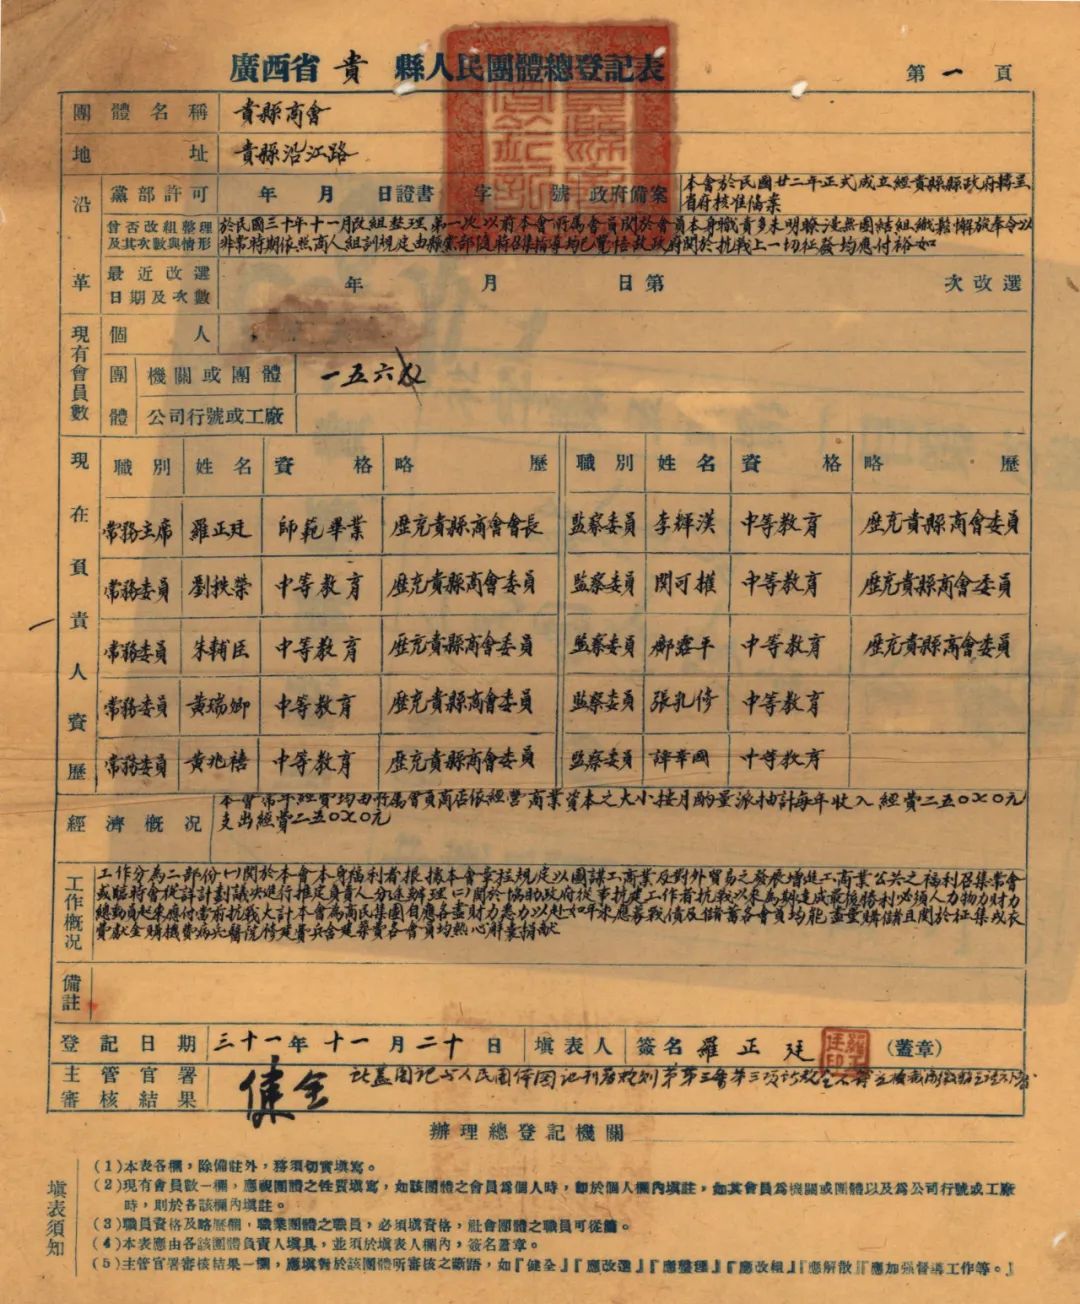 廣西省貴縣人民團體總登記表
第一頁
團體名稱 貴縣商會
地址 貴縣沿江路
沿革
黨部許可 年 月 日證書 字 號 政府備案 本會於民國廿二年正式成立經貴縣縣政府轉呈
省府核准備案
曾否改組整理及其次數與情形
於民國三十年十一月改組整理第一次以前本會所屬會員関於會員本身職責多未明瞭漫無團結組織鬆懈旋奉令以
非常時期依照商人組訓規定由縣黨部隨時召集指導均已覺悟故政府関於抗戰上一切征發均應付裕如
最近改選日期及次數 年 月 日第 次改選
現有會員數
個人
團體 機關或團體 一五六
公司行號或工廠
現在負責人資歷
職別 姓名 資格 略歷 職別 姓名 資格 略歷
常務主席 羅正廷 師範畢業 歷充貴縣商會會長 監察委員 李輝漢 中等教育 歷充貴縣商會委員
常務委員 劉扶榮 中等教育 歷充貴縣商會委員 監察委員 関可權 中等教育 歷充貴縣商會委員
常務委員 朱輔臣 中等教育 歷充貴縣商會委員 監察委員 平 中等教育 歷充貴縣商會委員
常務委員 黃瑞卿 中等教育 歷充貴縣商會委員 監察委員 張孔修 中等教育
常務委員 黃兆禧 中等教育 歷充貴縣商會委員 監察委員 譚華國 中等教育
經濟概况
本會常年經費均由所屬會員商店依經營商業資本之大小按月酌量派抽計每年收入經費二五〇X〇元
支出經費二五〇X〇元
工作概况
工作分為二部份(一)関於本會本身福利者根據本會章程規定以圖謀工商業及對外貿易之發展增進工商業公共之福利召集常會
或臨時會從詳計劃議決進行推定負責人分途辦理(二)関於協助政府從事抗建工作者抗戰以來為期達成最後勝利必須人力物力財力
總動員起來應付當前抗戰大計本會為商民集團自應各盡財力悉力以赴如年來應募戰債及儲蓄各會員均能盡量購儲且関於征集戎衣
費獻金購機費病兵醫院修建費兵舍建築費各會員均熱心解囊捐獻
備註
登記日期 三十一年十一月二十日 填表人 簽名 羅正廷 (蓋章)
主管官署審核結果 健全
辦理總登記機關
填表須知
(1)本表各欄,除備註外,務須切實填寫。
(2)現有會員數一欄,應視團體之性質填寫,如該團體之會員為個人時,即於個人欄內填註,如其會員為機關或團體以及為公司行號或工廠
時,則於各該欄內填註。
(3)職員資格及略歷欄,職業團體之職員,必須填資格,社會團體之職員可從簡。
(4)本表應由各該團體負責人填具,並須於填表人欄內,簽名蓋章。
(5)主管官署審核結果一欄,應填對於該團體所審核之斷語,如『健全』『應改選』『應整理』『應改組』『應解散』『應加强督導工作等。』